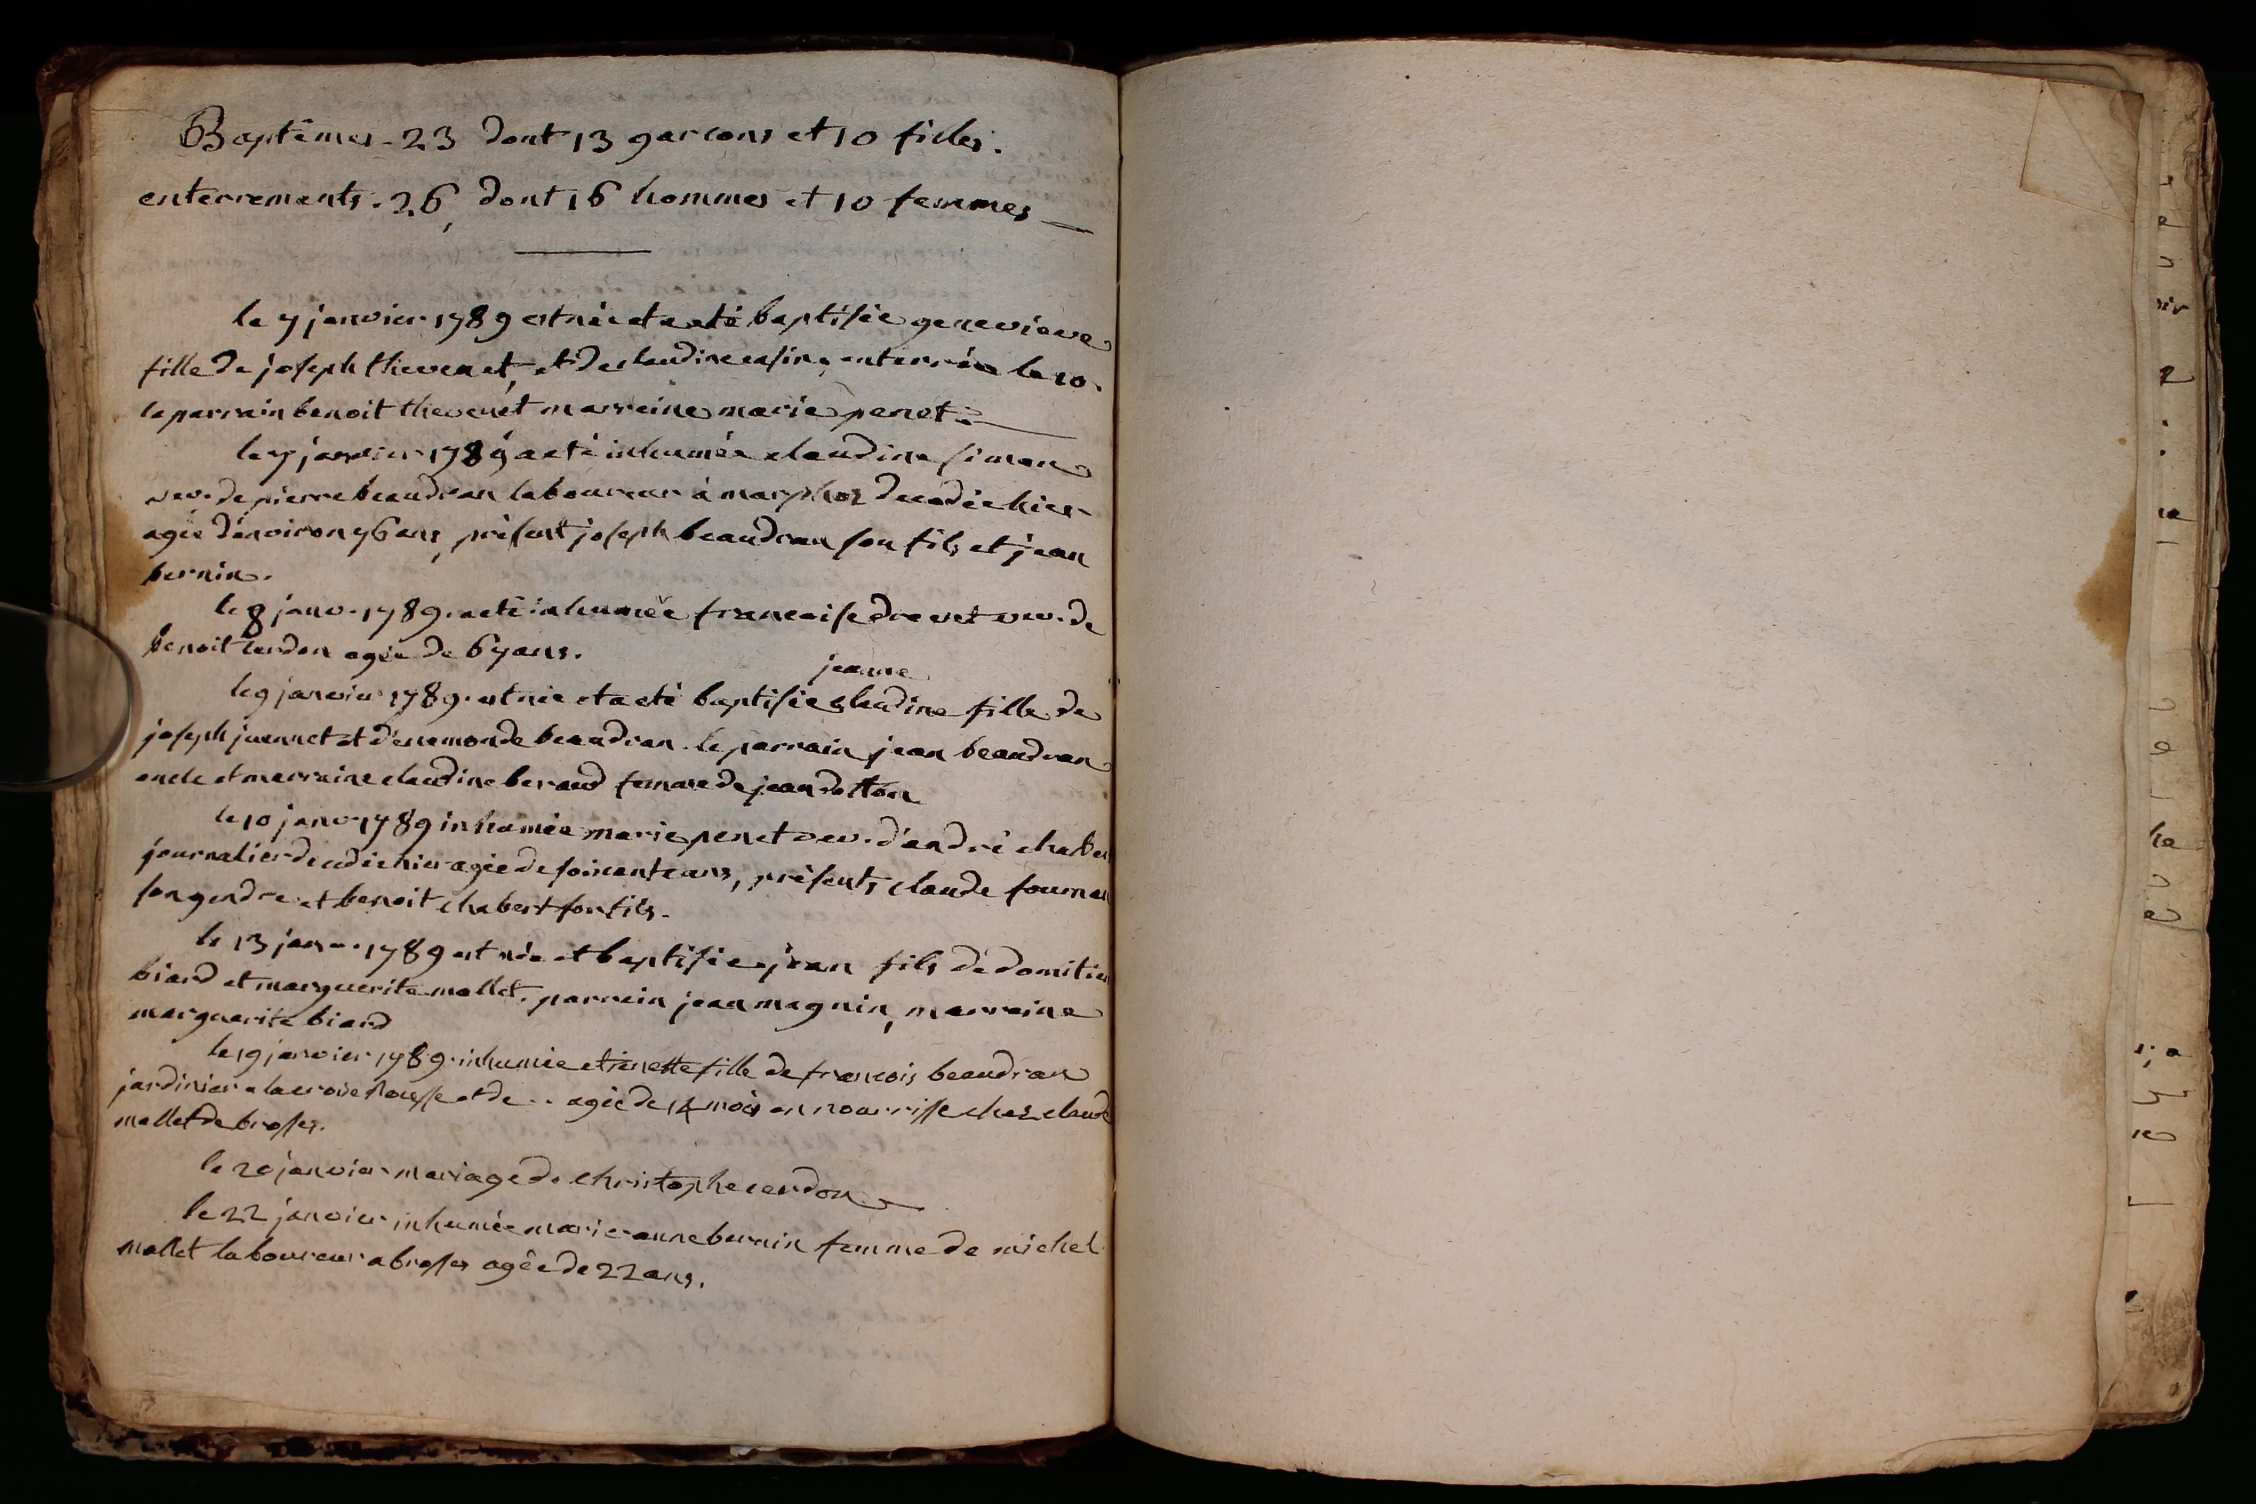 Baptêmes. 23 dont 13 garcons et 10 filles.
enterrements. 26, dont 16 hommes et 10 femmes
le 7 janvier 1789 est née et a eté baptisée genevieve
fille de joseph thevenet, et de claudine casin, enterrée le 10.
le parrain benoit thevenet marreine marie penet
le 7 janvier 1789 a eté inhumée claudine simon
vev. de pierre beaudran laboureur à marphoz decedée hier
agée d'environ 76 ans, présent joseph beaudran son fils et jean
bernin.
le 8 janv. 1789. a eté inhumée francoise drevet vev. de
benoit cerdon agée de 67 ans.
jeanne
le 9 janvier 1789. est née et a eté baptisée claudine fille de
joseph juennet et d'enemonde beaudran. le parrain jean beaudran
oncle et marraine claudine beraud femme de jean
le 10 janv 1789 inhumée marie penet vev. d'andré chaber
journalier decedée hier agée de soixante ans, présents claude
son gendre et benoit chabert son fils.
le 13 janv. 1789 est née et baptisée jean fils de domitien
biard et marguerite mollet. parrain jean magnin, marraine
marguerite biard
le 19 janvier 1789. inhumée etienette fille de francois beaudran
jardinier a la croix rousse et de .. agée de 14 mois en nourrisse chez claude
mollet de brosses.
le 20 janvier mariage de christophe cerdon
le 22 janvier inhumée marie anne bernin femme de michel
mollet laboureur a brosses agée de 22 ans.